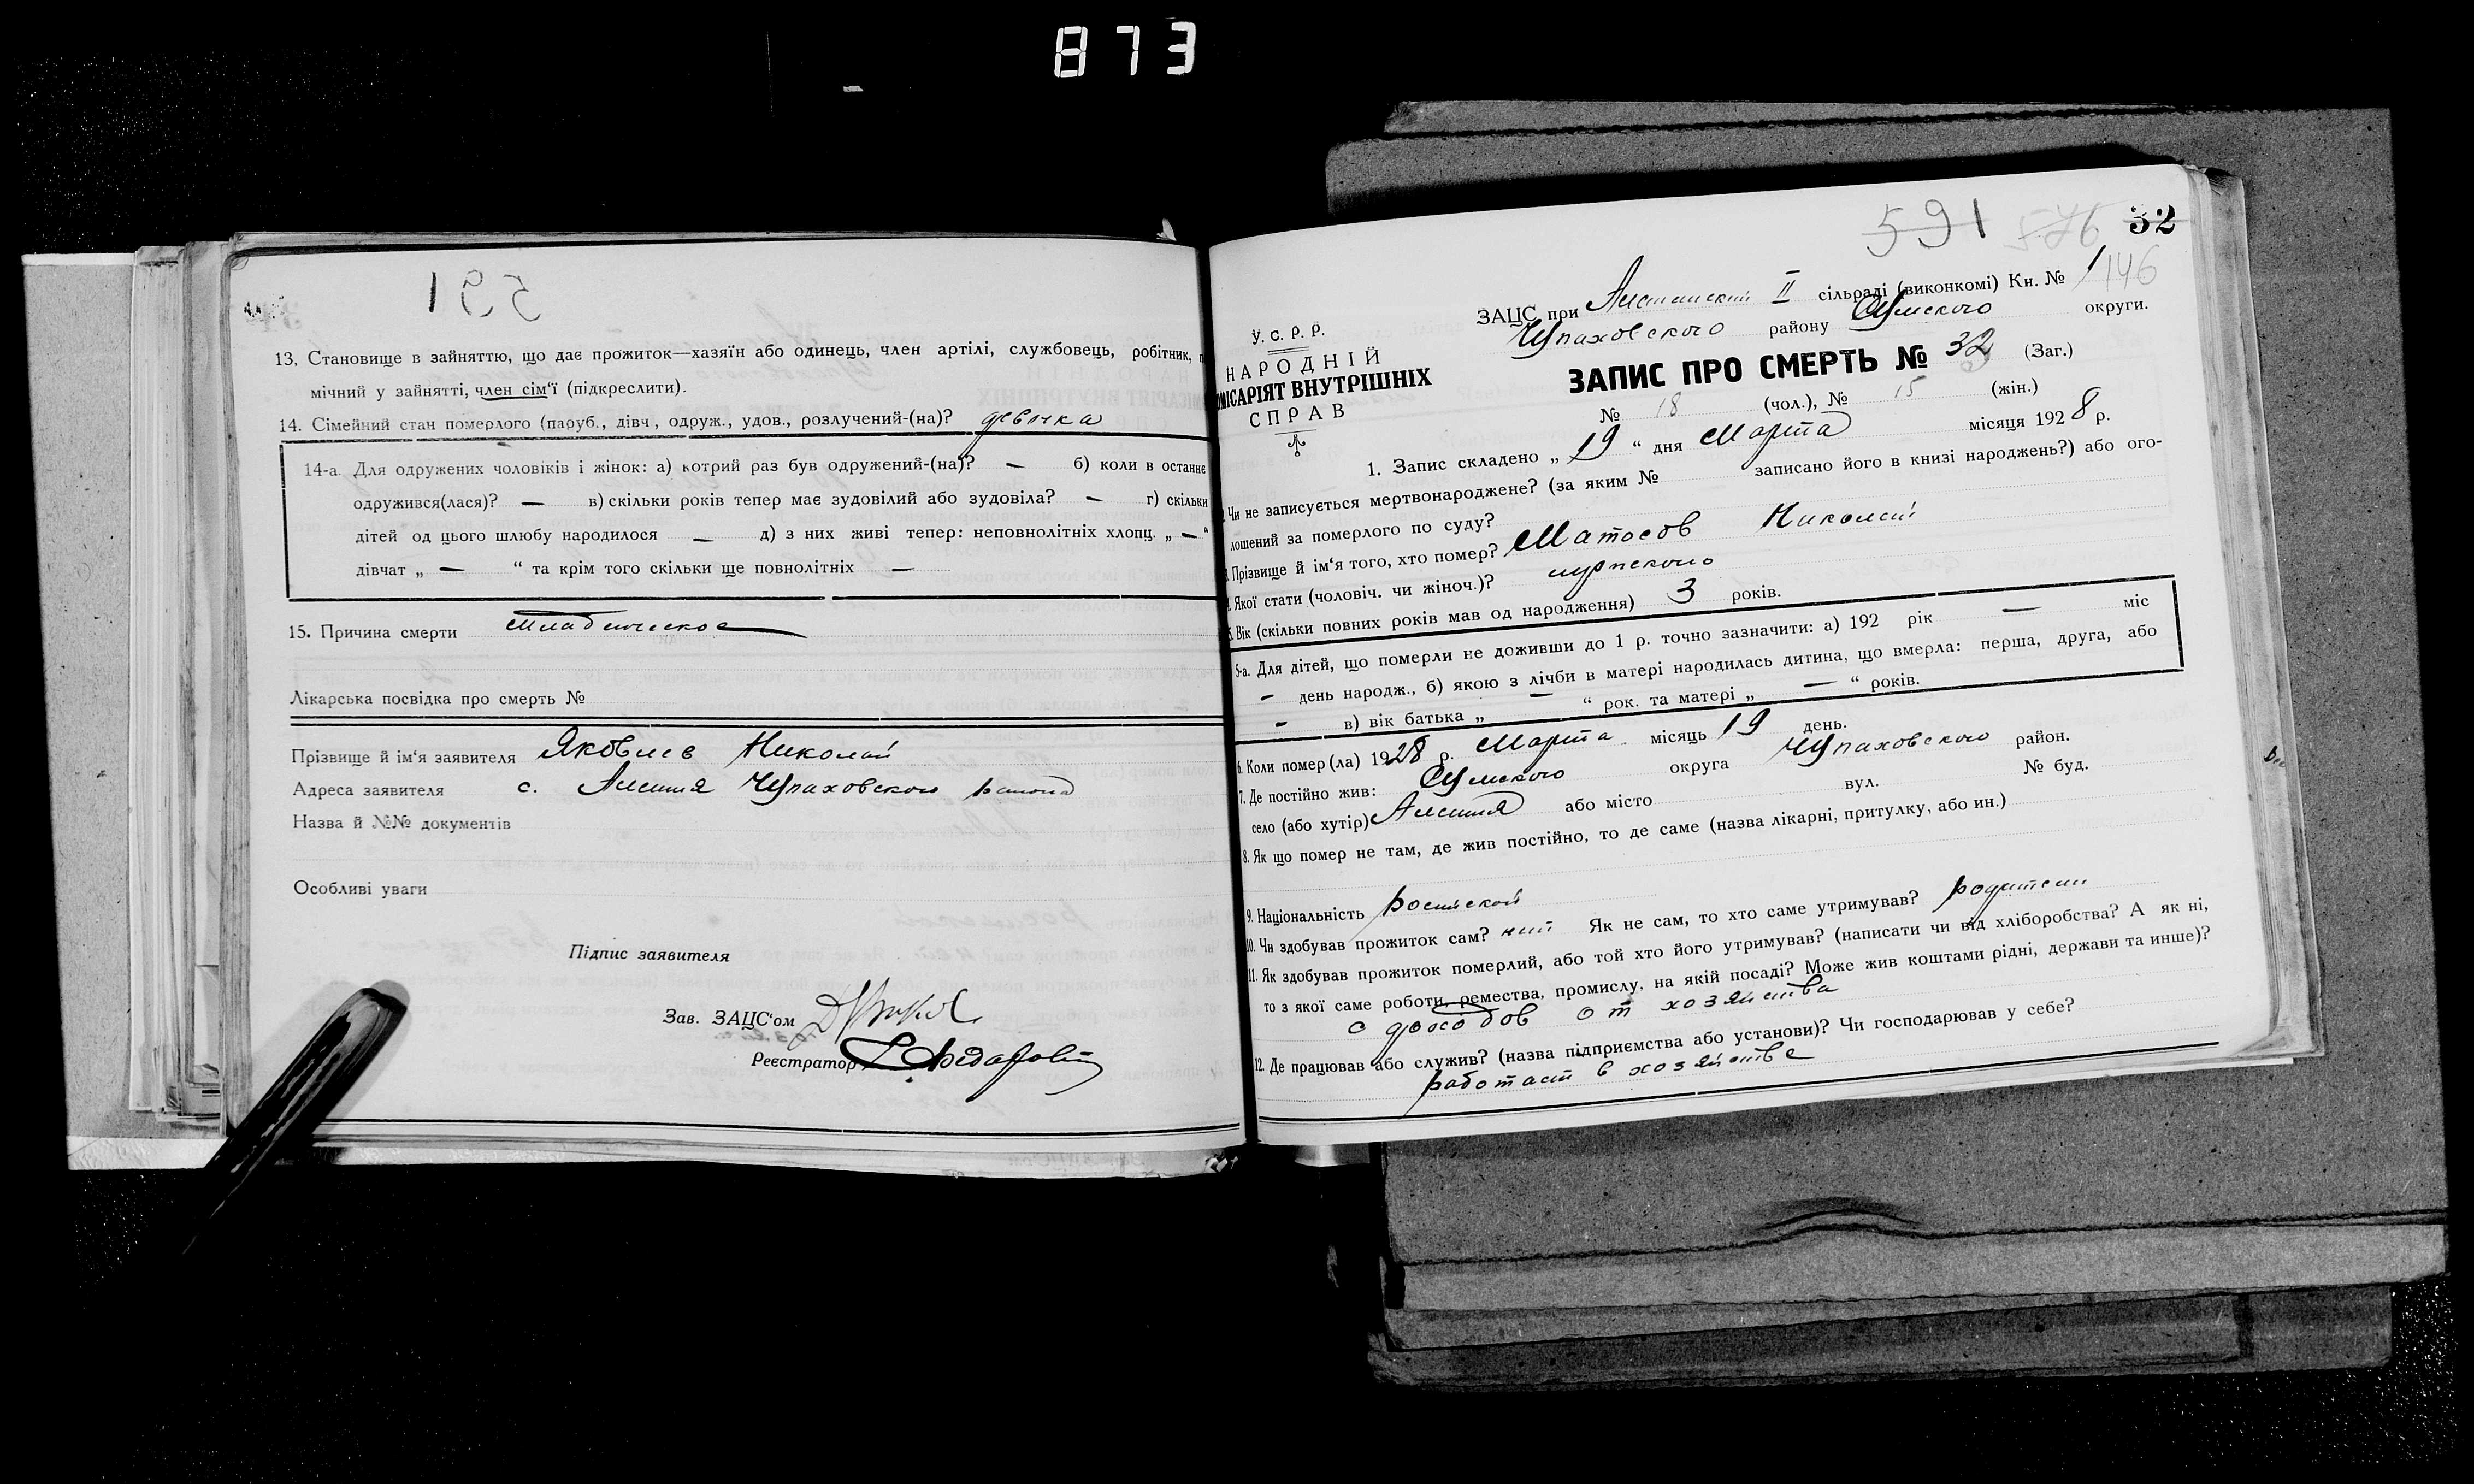 873
591
13. Становище в зайняттю, що дає прожиток—хазяїн або одинець, член артілі, службовець, робітник,
мічний у зайнятті, член сім'ї (підкреслити).
14. Сімейний стан померлого (паруб., дівч., одруж., удов., розлучений-(на)? девочка
14-а. Для одружених чоловіків і жінок: а) котрий раз був одружений-(на)? — б) коли в останнє
одружився(лася)? — в) скільки років тепер має зудовілий або зудовіла? — г) скільки
дітей од цього шлюбу народилося — д) з них живі тепер: неповнолітніх хлопц. „ — “
дівчат „ — “ та крім того скільки ще повнолітніх —
15. Причина смерти младенческое
Лікарська посвідка про смерть №
Прізвище й ім'я заявителя Яковлев Николай
Адреса заявителя с. Алешня Чупаховского района
Назва й №№ документів
Особливі уваги
Підпис заявителя
Зав. ЗАЦС'ом
Реєстратор
591 576 32
146
ЗАЦС при Алешанский II сільраді (виконкомі) Кн. № 1
Чупаховского району Сумского округи.
У.С.Р.Р.
НАРОДНІЙ
МІСАРІЯТ ВНУТРІШНІХ
СПРАВ
ЗАПИС ПРО СМЕРТЬ № 32 (Заг.)
№ 18 (чол.), № 15 (жін.)
1. Запис складено „ 19 “ дня Марта місяця 1928 р.
Чи не записується мертвонароджене? (за яким № записано його в книзі народжень?) або ого-
лошений за померлого по суду?
Прізвище й ім'я того, хто помер? Матосов Николай
Якої стати (чоловіч. чи жіноч.)? мужского
5. Вік (скільки повних років мав од народження) 3 років.
5-а. Для дітей, що померли не доживши до 1 р. точно зазначити: а) 192 рік — міс
— день народж., б) якою з лічби в матері народилась дитина, що вмерла: перша, друга, або
— в) вік батька „ — “ рок. та матері „ — “ років.
6. Коли помер(ла) 1928 р. Марта місяць 19 день.
7. Де постійно жив: Сумского округа Чупаховского район.
село (або хутір) Алешня або місто вул. № буд.
8. Як що помер не там, де жив постійно, то де саме (назва лікарні, притулку, або ин.)
9. Національність російской
10. Чи здобував прожиток сам? нет Як не сам, то хто саме утримував? родители
11. Як здобував прожиток померлий, або той хто його утримував? (написати чи від хліборобства? А як ні,
то з якої саме роботи, ремества, промислу, на якій посаді? Може жив коштами рідні, держави та инше)?
с доходов от хозяйства
12. Де працював або служив? (назва підприємства або установи)? Чи господарював у себе?
работает в хозяйстве